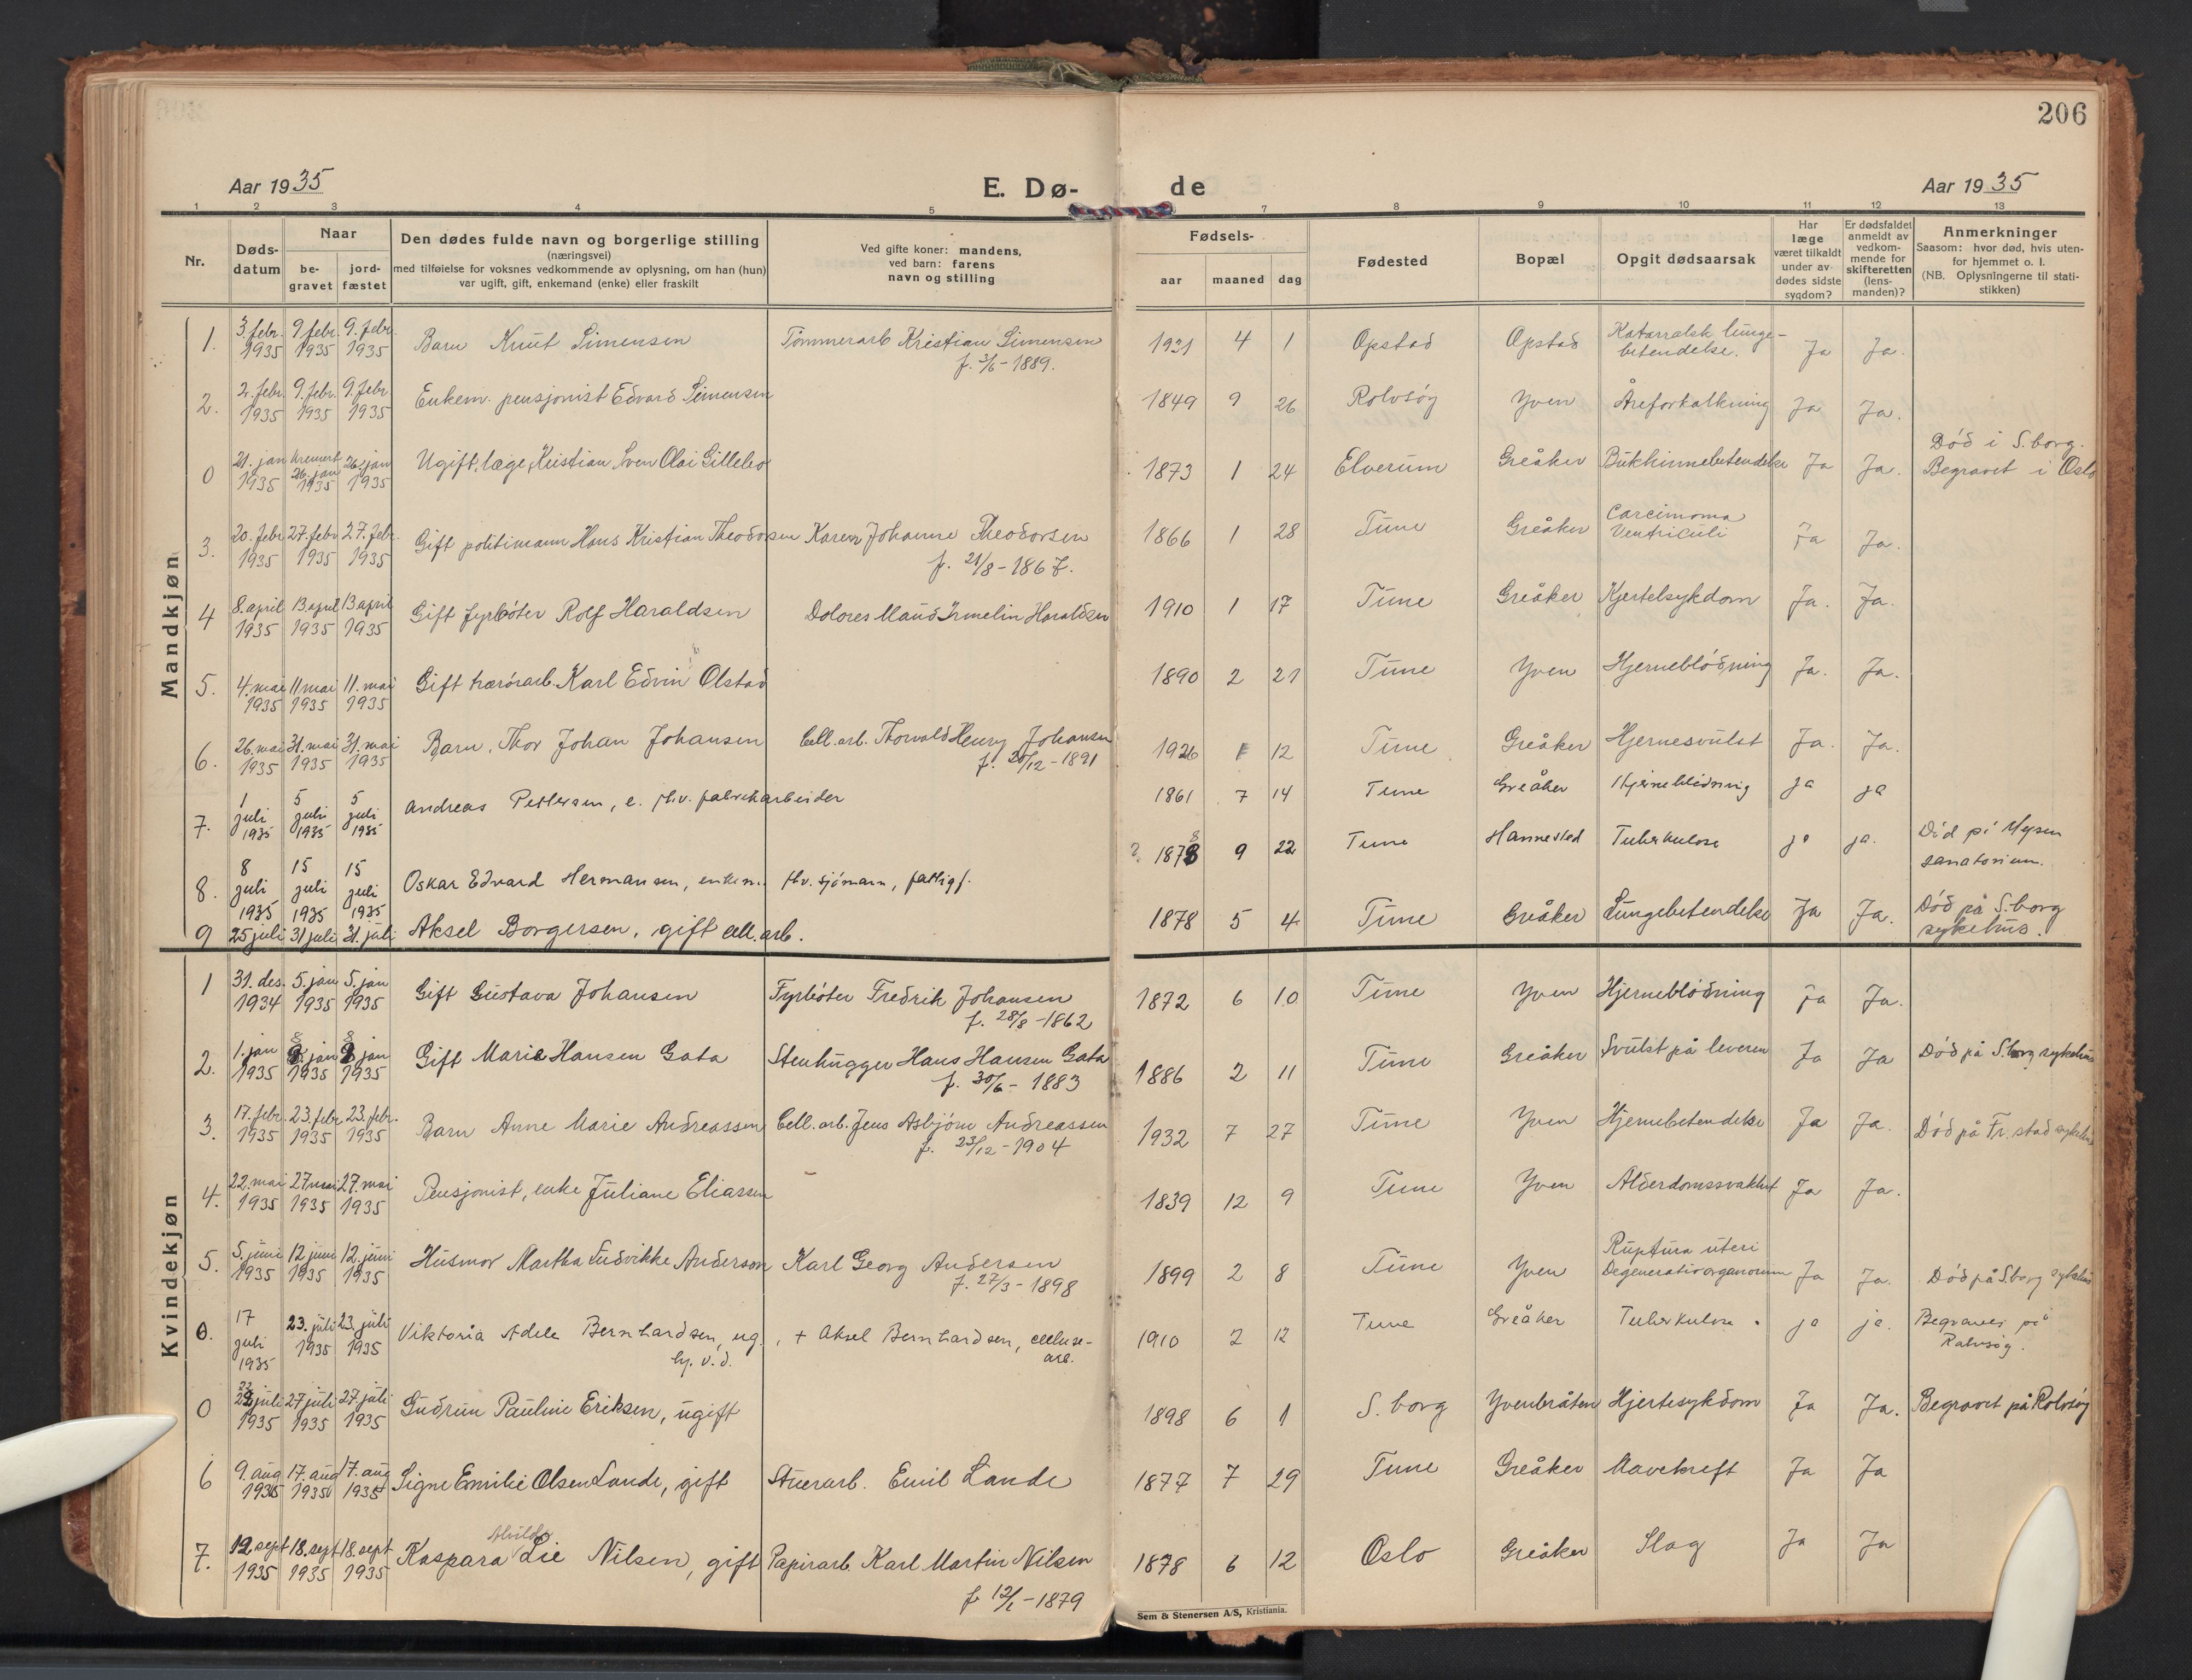 206
Aar 1935
E. Dø-
de
Aar 1935
1 2 3 4 5 7 8 9 10 11 12 13
Nr.
Døds-
datum
Naar
be-
gravet
jord-
fæstet
Den dødes fulde navn og borgerlige stilling
(næringsvei)
med tilføielse for voksnes vedkommende av oplysning, om han (hun)
var ugift, gift, enkemand (enke) eller fraskilt
Ved gifte koner: mandens,
ved barn: farens
navn og stilling
Fødsels-
aar maaned dag
Fødested
Bopæl
Opgit dødsaarsak
Har
læge
været tilkaldt
under av-
dødes sidste
sygdom?
Er dødsfaldet
anmeldt av
vedkom-
mende for
skifteretten
(lens-
manden)?
Anmerkninger
Saasom: hvor død, hvis uten-
for hjemmet o. l.
(NB. Oplysningerne til stati-
stikken)
Mandkjøn
1. 3 febr. 1935 9 febr. 1935 9. febr. 1935 Barn Knut Simensen Tømmerarb Kristian Simensen f. 3/6-1889. 1931 4 1 Opstad Opstad Katarralsk lunge-
betendelse. Ja Ja.
2. 2. febr. 1935 9. febr. 1935 9. febr 1935 Enkem. pensjonist Edvard Simensen 1849 9 26 Rolvsøy Yven Åreforkalkning Ja Ja.
0 21. jan 1935 Kremert 26. jan 1935 26. jan 1935 Ugift, læge, Kristian Sven Olai Gillebo 1873 1 24 Elverum Greåker Bukhinnebetendelse Ja Ja. Død i S.borg.
Begravet i Oslo
3. 20. febr 1935 27. febr 1935 27. febr. 1935 Gift politimann Hans Kristian Theodorsen Karen Johanne Theodorsen f. 21/8-1867. 1866 1 28 Tune Greåker Carcimoma
Ventriculi Ja Ja.
4 8. april 1935 13. april 1935 13 april 1935 Gift fyrbøter Rolf Haraldsen Dolores Maud Irmelin Haraldsen 1910 1 17 Tune Greåker Kjertelsykdom Ja. Ja.
5. 4. mai 1935 11 mai 1935 11. mai 1935 Gift Karl Edvin Olstad 1890 2 21 Tune Yven Hjerneblødning Ja. Ja.
6. 26. mai 1935 31. mai 1935 31. mai 1935 Barn, Thor Johan Johansen Cell.arb. Thorvald Henry Johansen f. 20/12-1891 1926 12 Tune Greåker Hjernesvulst Ja. Ja.
7. 1 juli 1935 5 juli 1935 5 juli 1935 Andreas Pettersen, e. fhv. fabrikarbeider 1861 7 14 Tune Greåker Hjerneblødning ja ja
8. 8 juli 1935 15 juli 1935 15 juli 1935 Oskar Edvard Hermansen, enkem. fhv. sjømann, fattigf. 1878 9 22 Tune Hannestad Tuberkulose ja ja. Død på Mysen
sanatorium.
9 25 juli 31 juli 31. juli Aksel Borgersen, gift cell.arb. 1878 5 4 Tune Greåker Lungebetendelse Ja Ja. Død på S.borg
sykehus.
Kvindekjøn
1 31. des. 1934 5. jan 1935 5. jan 1935 Gift Gustava Johansen Fyrbøter Fredrik Johansen f. 28/8-1862 1872 6 10 Tune Yven Hjerneblødning Ja Ja.
2. 1. jan 1935 8 jan 1935 8 jan 1935 Gift Marie Hansen Gata Stenhugger Hans Hansen Gata f. 30/6-1883 1886 2 11 Tune Greåker Svulst på leveren Ja Ja Død på S.borg sykehus
3. 17. febr. 1935 23. febr 1935 23. febr. 1935 Barn Anne Marie Andreassen Cell.arb. Jens Asbjørn Andreassen f. 23/12-1904 1932 7 27 Tune Yven Hjernebetendelse Ja Ja. Død på Fr.stad sykehus
4. 22. mai 1935 27 mai 1935 27. mai 1935 Pensjonist, enke Juliane Eliassen 1839 12 9 Tune Yven Alderdomssvakhet Ja Ja.
5. 5. juni 1935 12 juni 1935 12. juni 1935 Husmor Martha Ludvikke Anderson Karl Georg Andersen f. 27/3-1898 1899 2 8 Tune Yven Ruptura uteri
Degeneratio organorum Ja Ja. Død på S.borg sykehus
0. 17 juli 1935 23. juli 1935 23. juli 1935 Viktoria Adele Bernhardsen, ug. hj. v. d., + Aksel Bernhardsen, cellulose-
arb. 1910 2 12 Tune Greåker Tuberkulose. ja ja. Begravet på
Rolvsøy.
0 22 juli 1935 27 juli 1935 27. juli 1935 Gudrun Pauline Eriksen, ugift 1898 6 1 S. borg Yvenbråten Hjertesykdom Ja Ja. Begravet på Rolvsøy
6 9. aug 1935 17. aug 1935 17. aug 1935 Signe Emilie Olsen Lande, gift Stuerarb. Emil Lande 1877 7 29 Tune Greåker Mavekreft Ja Ja
7. 12 sept 1935 18. sept 1935 18. sept 1935 Kaspara Alvilde Lie Nilsen, gift Papirarb. Karl Martin Nilsen f. 12/1-1879 1878 6 12 Oslo Greåker Slag Ja Ja
Sem & Stenersen A/S, Kristiania.